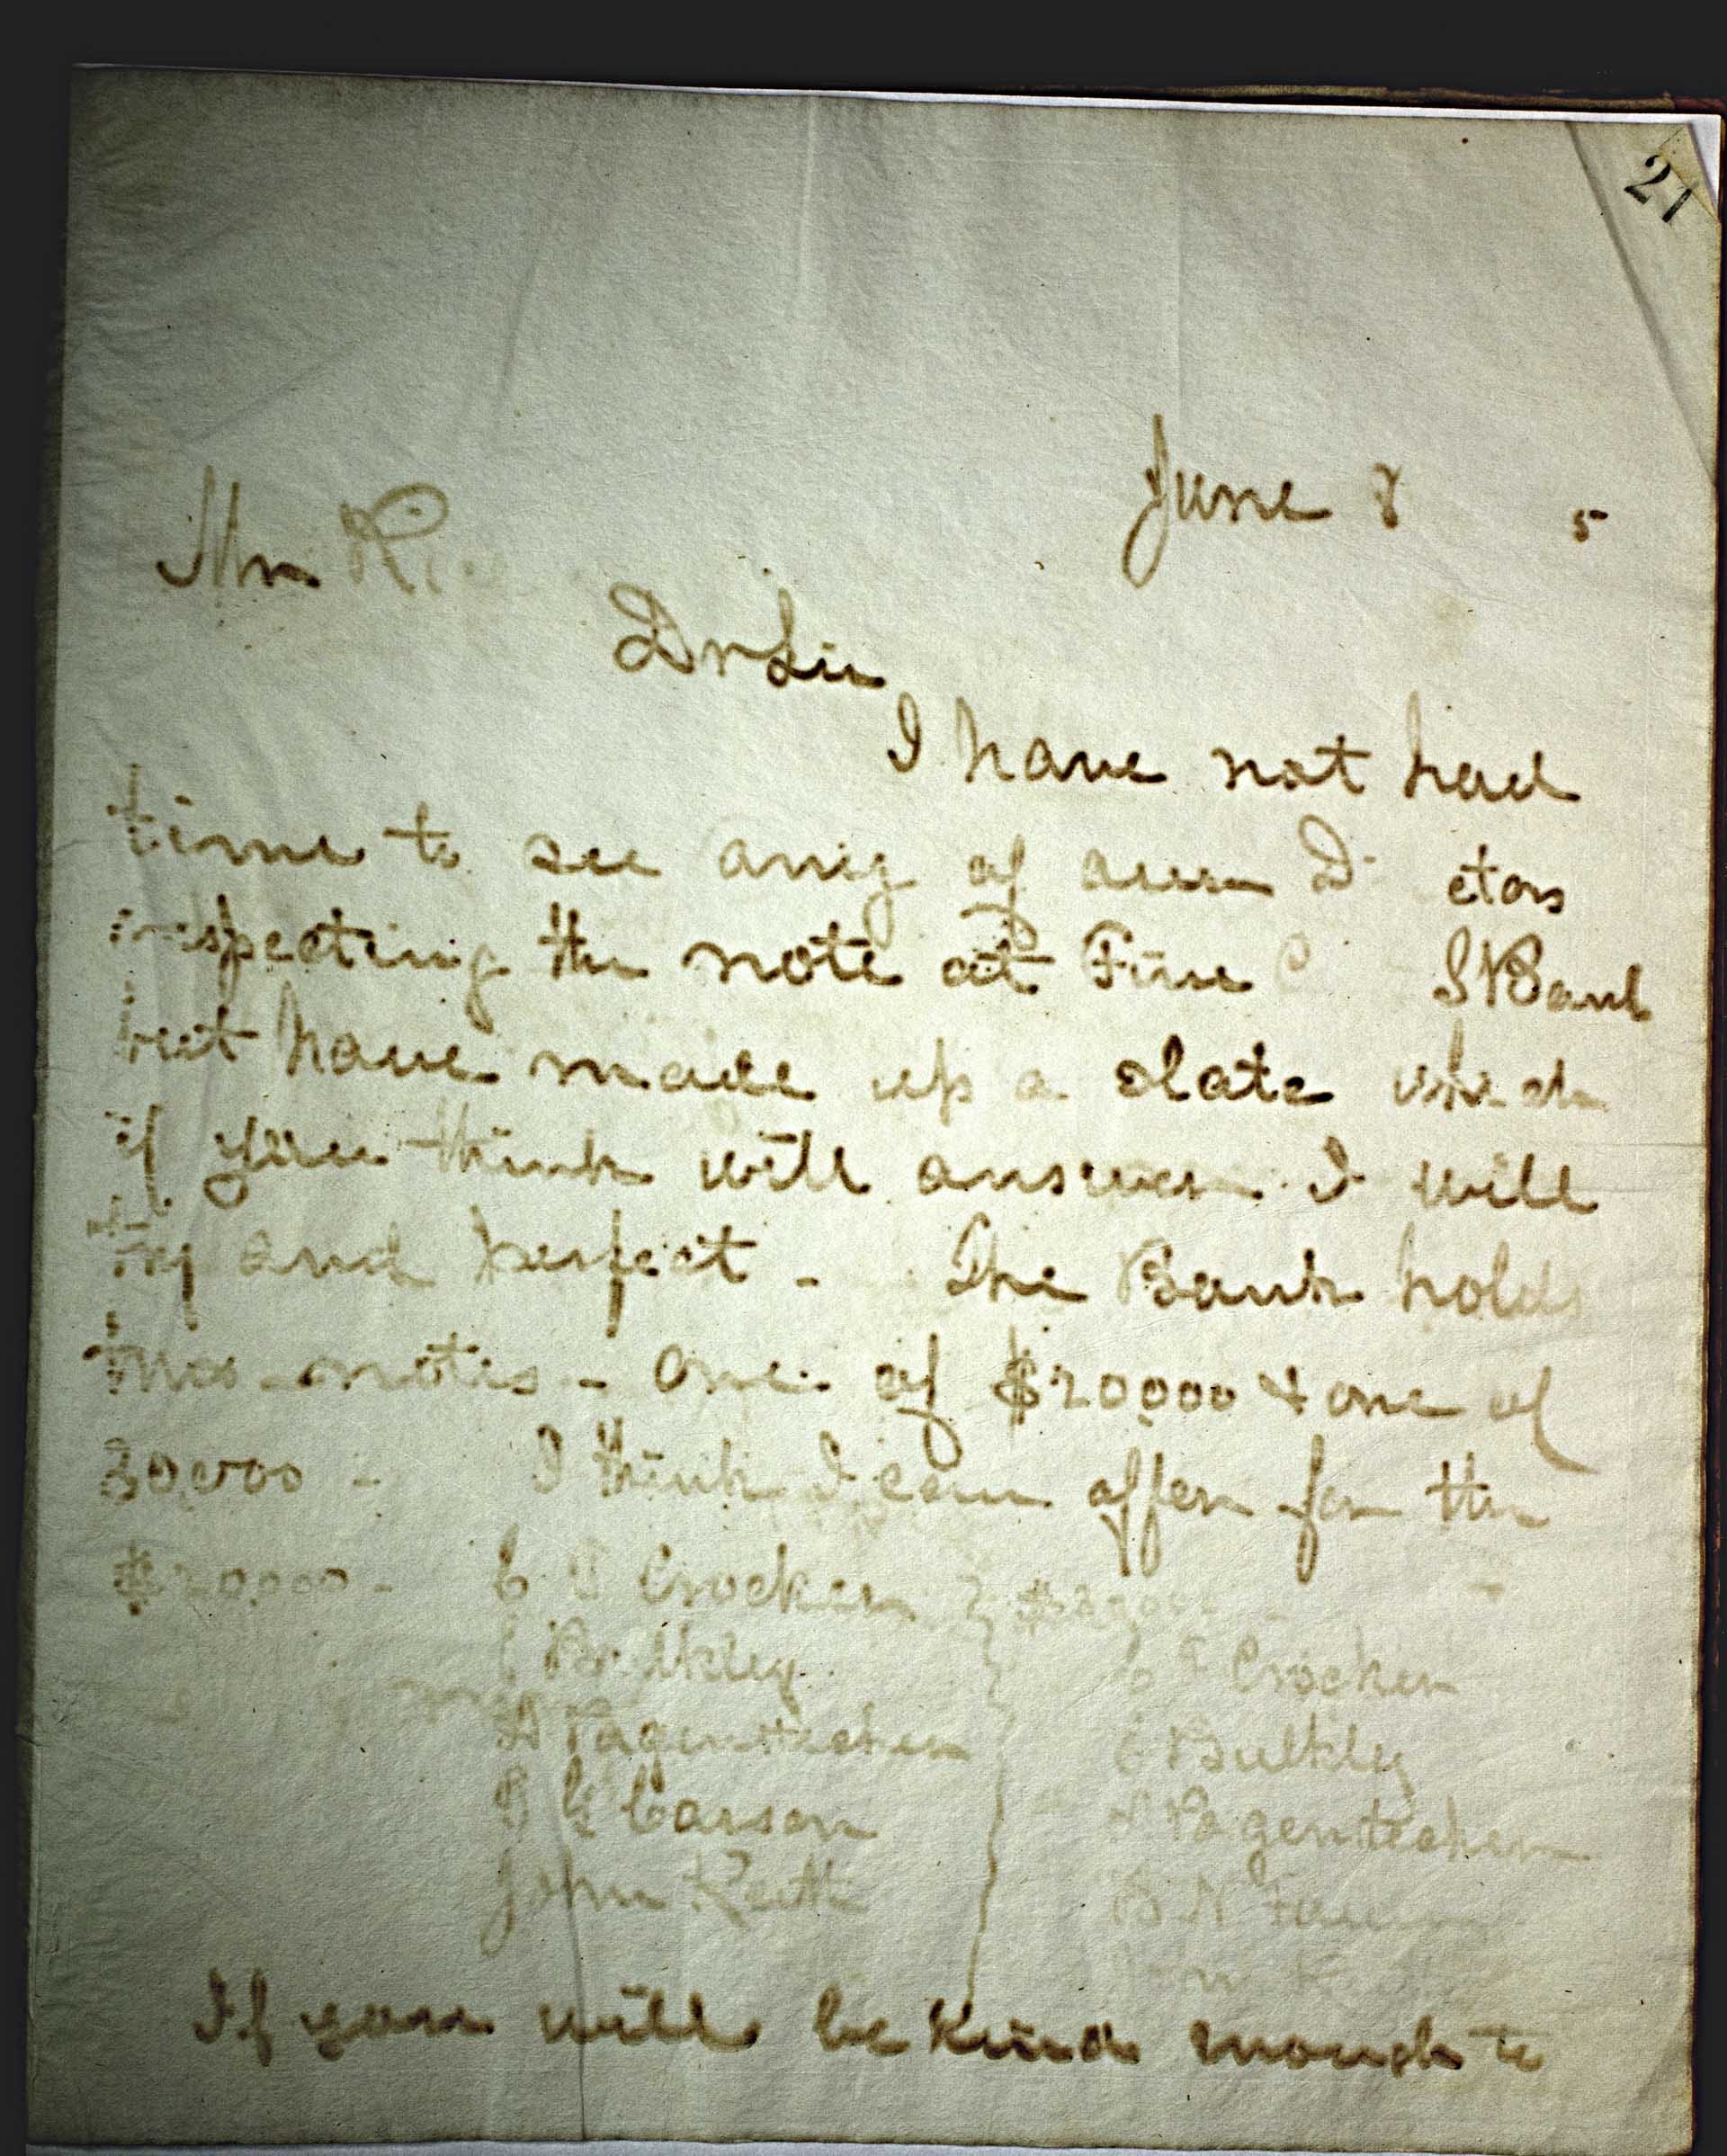 21
June 8 5
Mr
Dr Sir
I have not had
time to see any of our D ctors
respecting the note at Five S Bank
but have made up a slate which
if you think will answer I will
try and perfect - The Bank holds
two notes - one of $20,000 & one of
30,000 - I think I can offer for the
$20,000 - C T Crocker
Bulkley C T Crocker
A Pagenstecher E Bulkley
B F Carson A Pagenstecher
John Keith B N
If you will be kind enough to